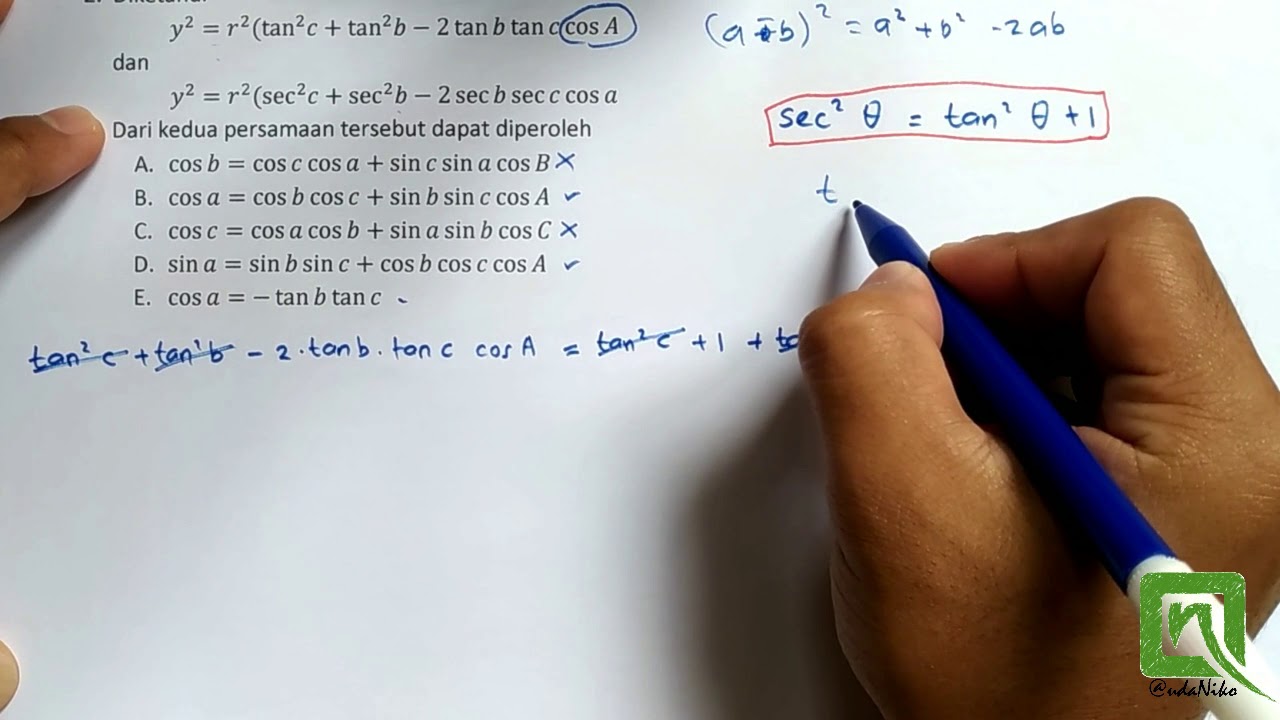 y² = r²(tan²c + tan²b − 2 tan b tan c cos A
dan
y² = r²(sec²c + sec²b − 2 sec b sec c cos a
Dari kedua persamaan tersebut dapat diperoleh
A. cos b = cos c cos a + sin c sin a cos B ×
B. cos a = cos b cos c + sin b sin c cos A ✓
C. cos c = cos a cos b + sin a sin b cos C ×
D. sin a = sin b sin c + cos b cos c cos A ✓
E. cos a = − tan b tan c
(a - b)² = a² + b² - 2ab
sec² θ = tan² θ + 1
t
tan² c + tan² b - 2 . tan b . tan c cos A = tan² c + 1 +
@udaNiko